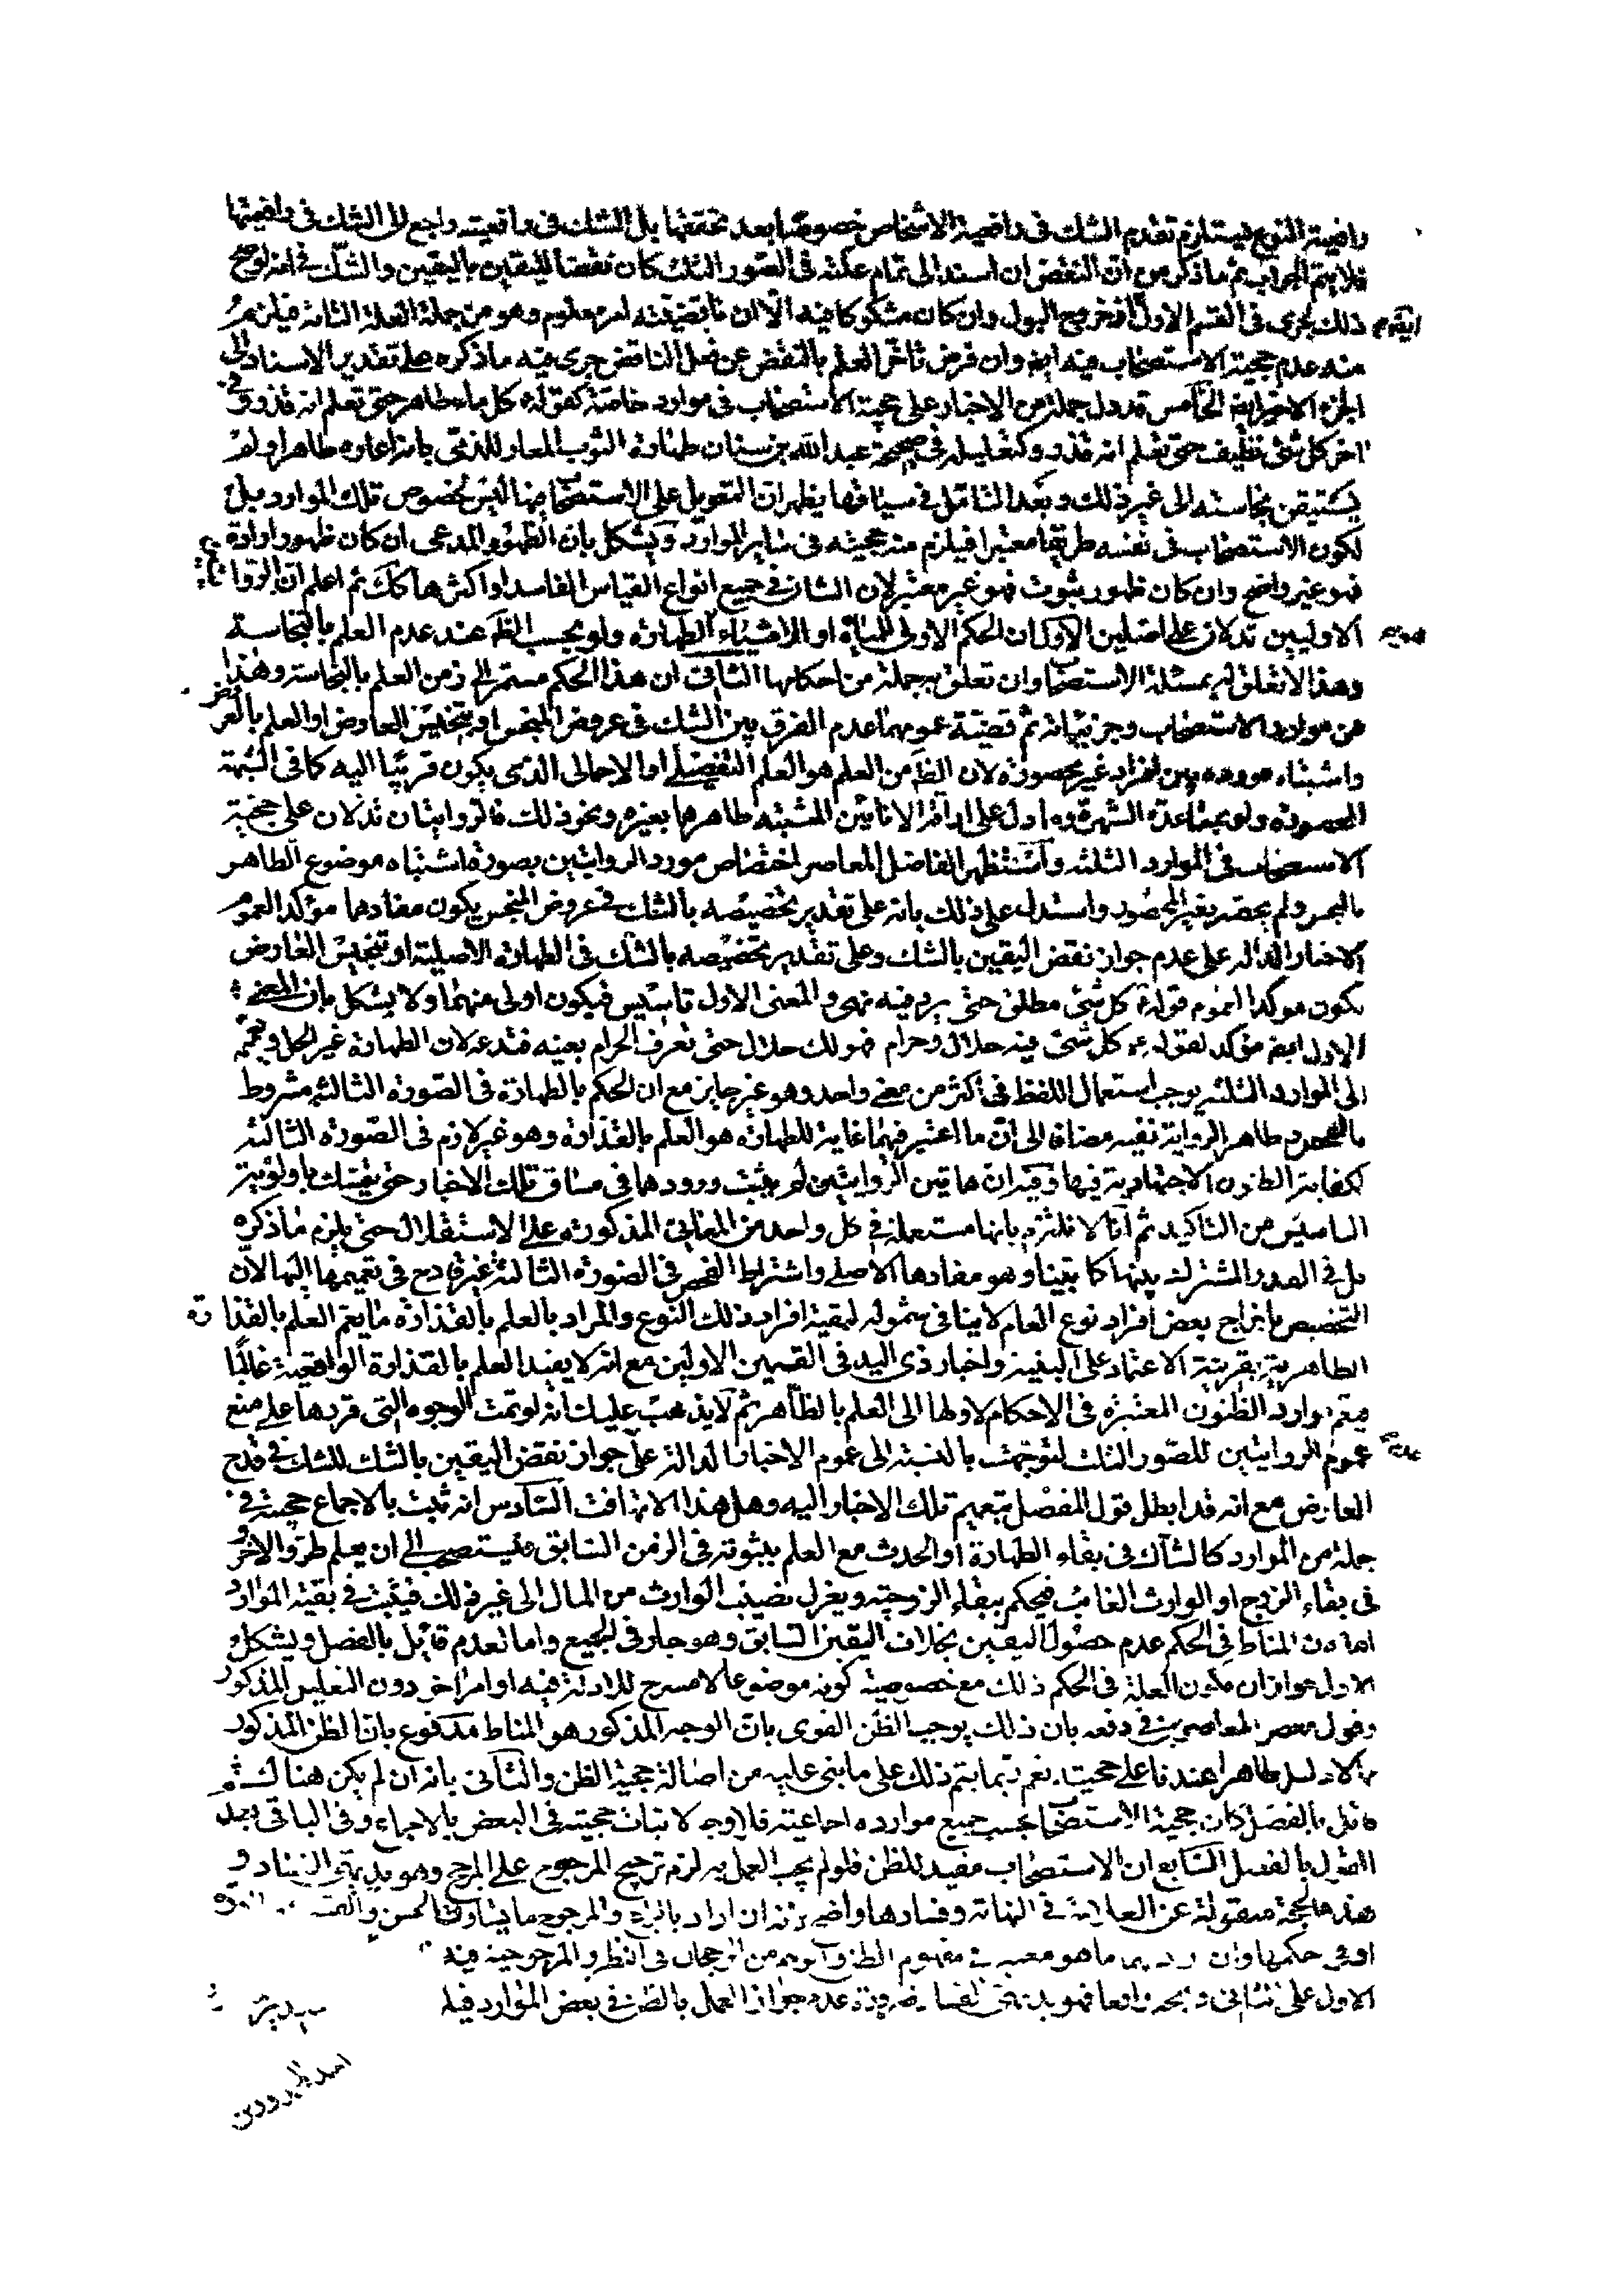 رافعية النوع فيستلزم تقدم الشك فى رافعية الاشخاص خصوصا بعد تحققها بل الشك فى رافعيته راجع الى الشك فى رافعيتها
فلا يتم الجواب ثم ما ذكر من ان النقض ان استند الى تمام علته فى الصور الثلث كان نقضا لليقين باليقين والشك فى امر لو صح
ذلك لجرى فى القسم الاول اذ خروج البول وان كان مشكوكا فيه الا ان ناقضيته امر معلوم وهو من جملة العلة التامة فيلزم
ايقوم
منه عدم حجية الاستصحاب فيه ايضا وان فرض تاخر العلم بالنقض عن فعل الناقض جرى فيه ما ذكره على تقدير الاسناد الى
الجزء الاخير ايضا الخامس قد دل جملة من الاخبار على حجية الاستصحاب فى موارد خاصة كقوله ع كل ماء طاهر حتى تعلم انه قذر وفى
اخر كل شئ نظيف حتى تعلم انه قذر وكتعليله فى صحيحة عبد الله بن سنان طهارة الثوب المعار للذمى بانه اعاره طاهرا ولم
يستيقن نجاسته الى غير ذلك وبعد التامل فى سياقها يظهر ان التعويل على الاستصحاب فيها ليس لخصوص تلك الموارد بل
لكون الاستصحاب فى نفسه طريقا معتبرا فيلزم منه حجيته فى ساير الموارد ويشكل بان الظهور المدعى ان كان ظهور ارادة
فهو غير واضح وان كان ظهور ثبوت فهو غير معتبر لان الشان فى جميع انواع القياس الفاسد او اكثرها كك ثم اعلم ان الروا
الاوليين تدلان على اصلين الاول ان الحكم الاولى للمياه او للاشياء الطهارة ولو بحسب الظ عند عدم العلم بالنجاسة
وهذا لا تعلق له بمسئلة الاستصحاب وان تعلق بجملة من احكامها الثانى ان هذا الحكم مستمر الى زمن العلم بالنجاسة وهذا
من موارد الاستصحاب وجزئياته ثم قضية عمومهما عدم الفرق بين الشك فى عروض المنجس او تنجيس العارض او العلم بالعر
واشتباه مورده بين افراد غير محصورة لان الظ من العلم هو العلم التفصيلى او الاجمالى الذى يكون قريبا اليه كما فى الشبهة
المحصورة ولو بمساعدة الشهرة وما دل على اراقة الانائين المشتبه طاهرهما بغيره ونحو ذلك فالروايتان تدلان على حجية
الاستصحاب فى الموارد الثلثة واستظهر الفاضل المعاصر اختصاص مورد الروايتين بصورة اشتباه موضوع الطاهر
بالنجس ولم يحصره بغير المحصور واستدل على ذلك بانه على تقدير تخصيصه بالشك فى عروض المنجس يكون مفادهما مؤكدا لعموم
الاخبار الدالة على عدم جواز نقض اليقين بالشك وعلى تقدير تخصيصه بالشك فى الطهارة الاصلية او تنجيس العارض
يكون مؤكدا لعموم قوله ع كل شئ مطلق حتى يرد فيه نهى والمعنى الاول تاسيس فيكون اولى منهما ولا يشكل بان المعنى
الاول ايضا مؤكد لقوله ع كل شئ فيه حلال وحرام فهو لك حلال حتى تعرف الحرام بعينه فتدعه لان الطهارة غير الحل وتعميمه
الى الموارد الثلثة يوجب استعمال اللفظ فى اكثر من معنى واحد وهو غير جايز مع ان الحكم بالطهارة فى الصورة الثالثة مشروط
بالفحص دم ظاهر الرواية نفيه مضافا الى ان ما اعتبر فيهما غاية للطهارة هو العلم بالقذارة وهو غير لازم فى الصورة الثالثة
لكفاية الظنون الاجتهادية فيها وفيه ان هاتين الروايتين لم يثبت ورودهما فى مساق تلك الاخبار حتى يتمسك باولوية
التاسيس من التاكيد ثم انا لا نلتزم بانها مستعملة فى كل واحد من المعانى المذكورة على الاستقلال حتى يلزم ما ذكره
بل فى القدر المشترك بينها كما بيّنا وهو مفادها الاصلى واشتراط الفحص فى الصورة الثالثة غير قادح فى تعميمها اليها لان
التخصيص باخراج بعض افراد نوع العام لا ينافى شموله لبقية افراد ذلك النوع والمراد بالعلم بالقذارة ما يعم العلم بالقذا رة
الظاهرية بقرينة الاعتماد على البينة واخبار ذى اليد فى القسمين الاولين مع انه لا يفيد العلم بالقذارة الواقعية غالبا
فيعم موارد الظنون المعتبرة فى الاحكام لاولها الى العلم بالظاهر ثم لا يذهب عليك انه لو تمت الوجوه التى قررها على منع
عموم الروايتين للصور الثلث لتوجهت بالنسبة الى عموم الاخبار الدالة على جواز نقض اليقين بالشك للشك فى قدح
العارض مع انه قد ابطل قول المفصل بتعميم تلك الاخبار اليه وهل هذا الا تهافت السادس انه ثبت بالاجماع حجيته فى
جملة من الموارد كالشاك فى بقاء الطهارة او الحدث مع العلم بثبوته فى الزمن السابق فيستصحب الى ان يعلم طرو الاخر و
فى بقاء الزوج او الوارث الغائب فيحكم ببقاء الزوجية ويعزل نصيب الوارث من المال الى غير ذلك فيثبت فى بقية الموارد
اما لان المناط فى الحكم عدم حصول اليقين بخلاف اليقين السابق وهو جار فى الجميع واما لعدم قائل بالفصل ويشكل
الاول بجواز ان يكون العلة فى الحكم ذلك مع خصوصية كونه موضوعا لا مسرح للادلة فيه او امر اخر دون التعليل المذكور
وقول بعض المعاصرين فى دفعه بان ذلك يوجب الظن القوى بان الوجه المذكور هو المناط مدفوع بان الظن المذكور
مما لا دليل ظاهرا عندنا على حجيته نعم ربما يتم ذلك على ما بنى عليه من اصالة حجية الظن والثانى بانه ان لم يكن هناك
قائل بالفصل كان حجية الاستصحاب بحسب جميع موارده اجماعية فلا وجه لاثبات حجيته فى البعض بالاجماع وفى الباقى بعدم
القول بالفصل السابع ان الاستصحاب مفيد للظن فلو لم يجب العمل به لزم ترجيح المرجوح على الراجح وهو بديهى الفساد و
هذه الحجة منقولة عن العلامة فى النهاية وفسادها واضح لانه ان اراد بالراجح والمرجوح ما يساوق الحسن والقبح
او فى حكمها وان اراد بهما ما هو معتبر فى مفهوم الظن والوهم من الرجحان فى النظر والمرجوحية فيه
الاول على الثانى